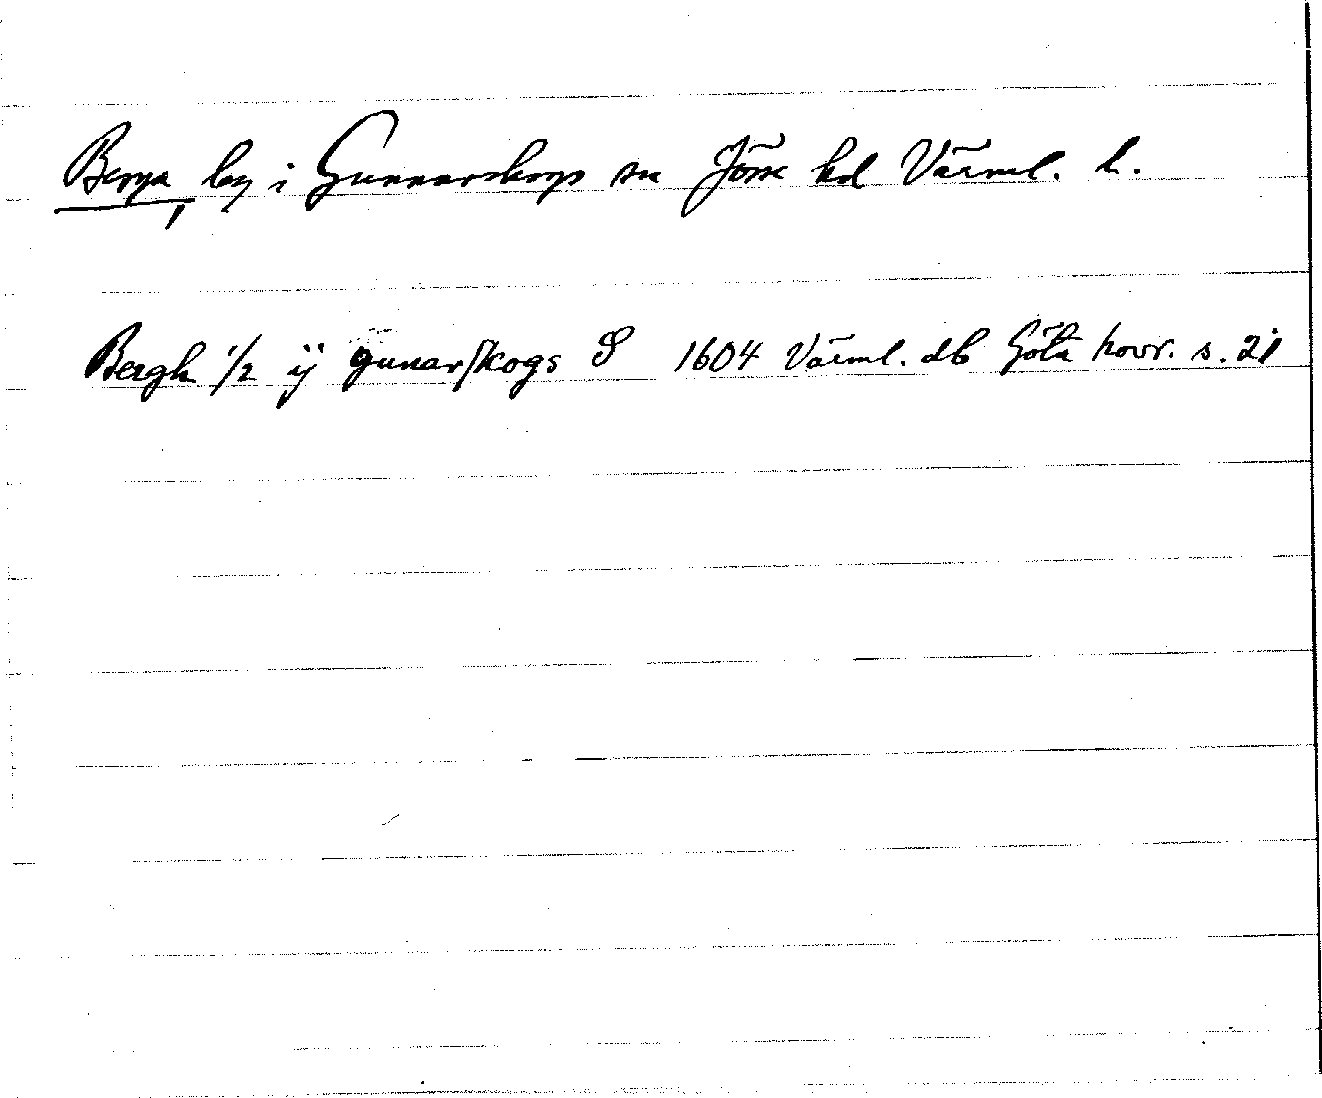 Berga, by i Gunnarskogs sn Jösse hd Värml. l.
Bergh 1/2 ij gunarſkogs S 1604 Värml. db Göta hovr. s. 21